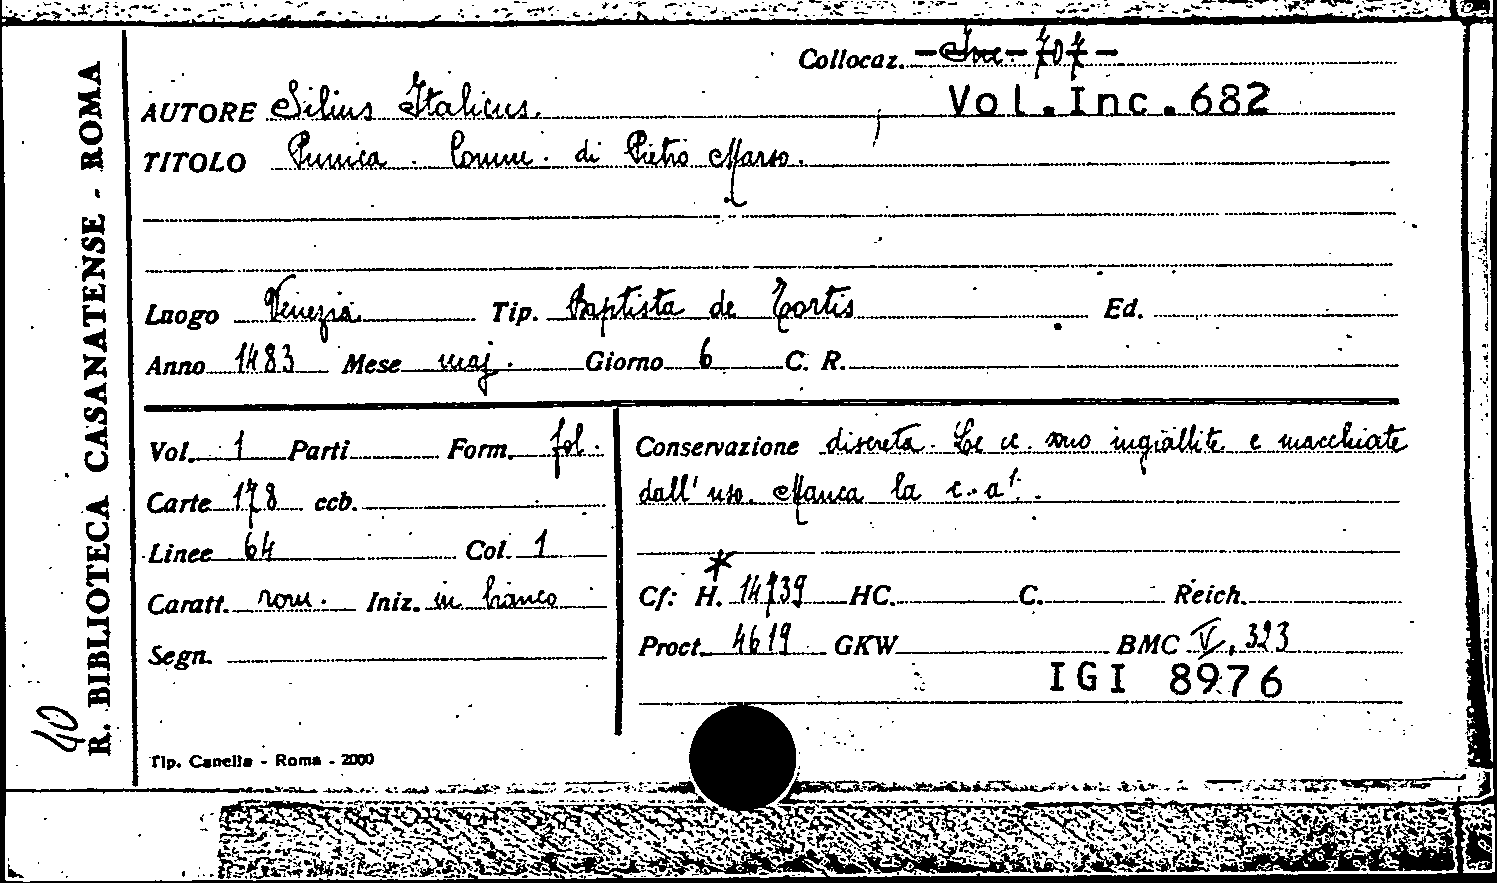 Collocaz. Inc. 707
AUTORE Silius Italicus. Vol.Inc.682
TITOLO Punica. Comm. di Pietro Marso.
Luogo Venezia Tip. Baptista de Tortis Ed.
Anno 1483 Mese maj. Giorno 6 C. R.
Vol. 1 Parti Form. fol.
Carte 178 ccb.
Linee 64 Col. 1
Caratt. rom. Iniz. in bianco
Segn.
Conservazione discreta. Le cc. sono ingiallite e macchiate
dall'uso. Manca la c. a1.
Cf: H.* 14739 HC. C. Reich.
Proct. 4619 GKW BMC V, 323
IGI 8976
Tip. Canella - Roma - 2000
R. BIBLIOTECA CASANATENSE - ROMA
40